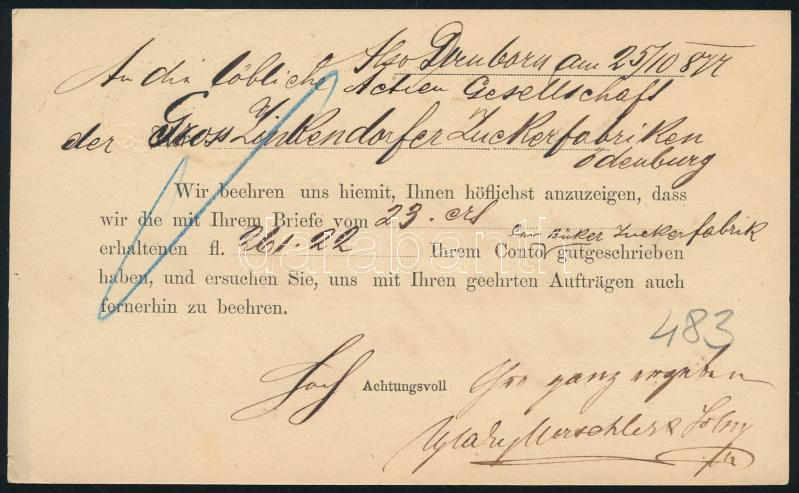 Also Dombora am 25/10 877
An die löbliche Actien Gesellschaft
der Gross Zinkendorfer Zuckerfabriken
Ödenburg
Wir beehren uns hiemit, Ihnen höflichst anzuzeigen, dass
wir die mit Ihrem Briefe vom 23. crt
erhaltenen fl. 261.22 Ihrem Conto Büker Zuckerfabrik gutgeschrieben
haben, und ersuchen Sie, uns mit Ihren geehrten Aufträgen auch
fernerhin zu beehren.
483
Hoch Achtungsvoll ganz ergeben
darabanth